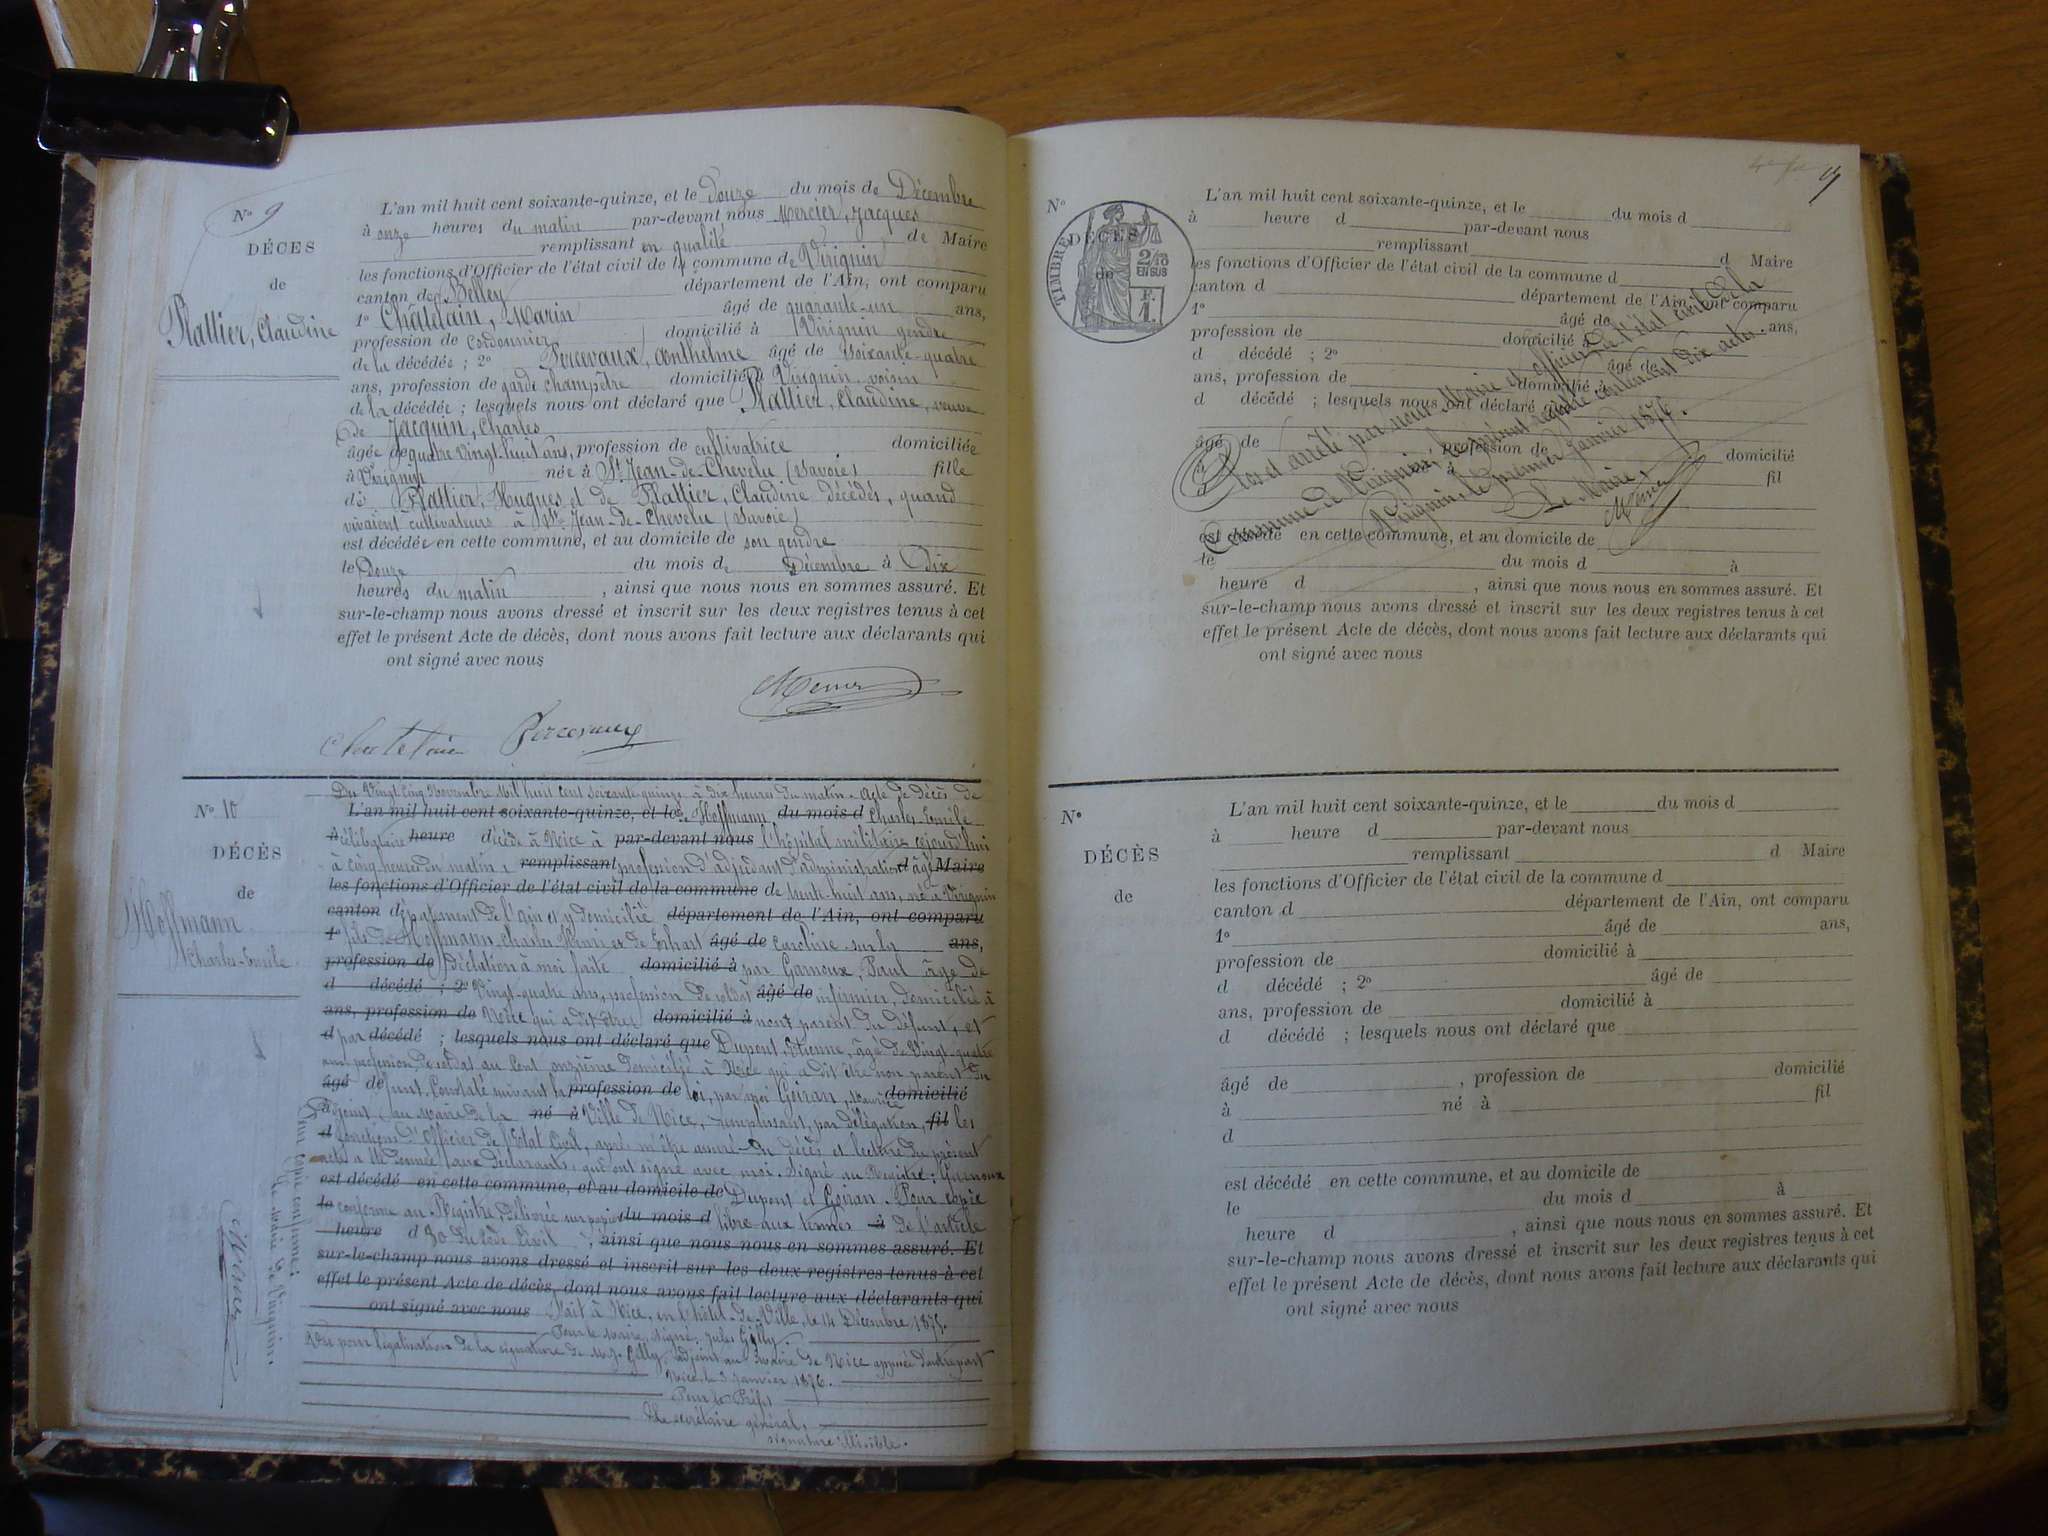 N° 9
DÉCES
de
Plattier, Claudine
L'an mil huit cent soixante-quinze, et le douze du mois de Décembre
à onze heures du matin par-devant nous Mercier, Jacques
remplissant en qualité de Maire
les fonctions d'Officier de l'état civil de la commune de Virignin
canton de Belley département de l'Ain, ont comparu
1° Châtelain, Marin âgé de quarante-un ans,
profession de cordonnier domicilié à Virignin gendre
de la décédée ; 2° Percevaux, Anthelme âgé de soixante-quatre
ans, profession de garde champêtre domicilié à Virignin voisin
de la décédée ; lesquels nous ont déclaré que Plattier, Claudine, veuve
de Jacquin, Charles
âgée de quatre vingt-huit ans, profession de cultivatrice domiciliée
à Virignin née à St Jean-de-Chevelu (Savoie) fille
de Plattier, Hugues et de Plattier, Claudine décédés, quand
vivaient cultivateurs à St Jean-de-Chevelu (Savoie)
est décédée en cette commune, et au domicile de son gendre
le Douze du mois de Décembre à Dix
heures du matin , ainsi que nous nous en sommes assuré. Et
sur-le-champ nous avons dressé et inscrit sur les deux registres tenus à cet
effet le présent Acte de décès, dont nous avons fait lecture aux déclarants qui
ont signé avec nous
Mercier
Chatelain Percevaux
N° 10
DÉCÈS
de
Hoffmann
Charles-Emile
Du Vingt Cinq Novembre Mil huit cent soixante-quinze à dix heures du matin. Acte de décès de
L'an mil huit cent soixante-quinze, et le Hoffmann du mois d Charles-Emile
à célibataire heure décédé à Nice à par-devant nous l'hôpital militaire aujourd'hui
à cinq heures du matin, remplissant profession d'adjudant d'administration d âgé Maire
les fonctions d'Officier de l'état civil de la commune de trente-huit ans, né à Virignin
canton département de l'Ain et y domicilié département de l'Ain, ont comparu
1° fils de Hoffmann, Charles Henri et de Erhart âgé de Caroline sur la ans,
profession de déclation à moi faite domicilié à par Garnoux, Paul âgé de
d décédé ; 2° Vingt-quatre ans, profession de soldat âgé de infirmier, domicilié à
ans, profession de Nice qui a dit être domicilié à non parent du défunt, et
d par décédé ; lesquels nous ont déclaré que Dupont, Etienne, âgé de Vingt-quatre
ans profession de soldat au Cent onzième domicilié à Nice qui a dit être non parent du
âgé de funt. Constaté suivant la profession de loi, par moi Goiran, Maurice domicilié
à djoint au Maire de la né à Ville de Nice, remplissant, par délégation, fil les
d fonctions d'Officier de l'Etat Civil, après m'être assuré du décès et lecture du présent
acte a été donnée aux déclarants, qui ont signé avec moi. Signé au Registre: Garnoux
est décédé en cette commune, et au domicile de Dupont et Goiran. Pour copie
le conforme au Registre, délivrée sur papier du mois d libre aux termes à de l'article
heure d 80 du Code Civil , ainsi que nous nous en sommes assuré. Et
sur-le-champ nous avons dressé et inscrit sur les deux registres tenus à cet
effet le présent Acte de décès, dont nous avons fait lecture aux déclarants qui
ont signé avec nous Fait à Nice, en l'hôtel-de-Ville, le 14 Décembre 1875.
Pour le Maire, signé: Jules Gilly.
Vu pour légalisation de la signature de M. J. Gilly, adjoint au Maire de Nice apposée d'autre part
Nice, le 3 Janvier 1876.
Pour le Préfet
Le secrétaire général,
signature illisible.
Pour copie conforme:
Le Maire de Virignin.
Mercier
N°
DÉCÈS
de
TIMBRE
2/10
EN SUS
F.
1.
L'an mil huit cent soixante-quinze, et le du mois d
à heure d par-devant nous
remplissant d Maire
les fonctions d'Officier de l'état civil de la commune d
canton d département de l'Ain, ont comparu
1° âgé de ans,
profession de domicilié à
d décédé ; 2° âgé de
ans, profession de domicilié à
d décédé ; lesquels nous ont déclaré que
âgé de , profession de domicilié
à né à fil
d
est décédé en cette commune, et au domicile de
le du mois d à
heure d , ainsi que nous nous en sommes assuré. Et
sur-le-champ nous avons dressé et inscrit sur les deux registres tenus à cet
effet le présent Acte de décès, dont nous avons fait lecture aux déclarants qui
ont signé avec nous
Clos et arrêté par nous Maire et officier de l'état civil de la
Commune de Virignin, le présent registre contenant dix actes.
Virignin, le premier Janvier 1876.
Le Maire,
Mercier
N°
DÉCÈS
de
L'an mil huit cent soixante-quinze, et le du mois d
à heure d par-devant nous
remplissant d Maire
les fonctions d'Officier de l'état civil de la commune d
canton d département de l'Ain, ont comparu
1° âgé de ans,
profession de domicilié à
d décédé ; 2° âgé de
ans, profession de domicilié à
d décédé ; lesquels nous ont déclaré que
âgé de , profession de domicilié
à né à fil
d
est décédé en cette commune, et au domicile de
le du mois d à
heure d , ainsi que nous nous en sommes assuré. Et
sur-le-champ nous avons dressé et inscrit sur les deux registres tenus à cet
effet le présent Acte de décès, dont nous avons fait lecture aux déclarants qui
ont signé avec nous